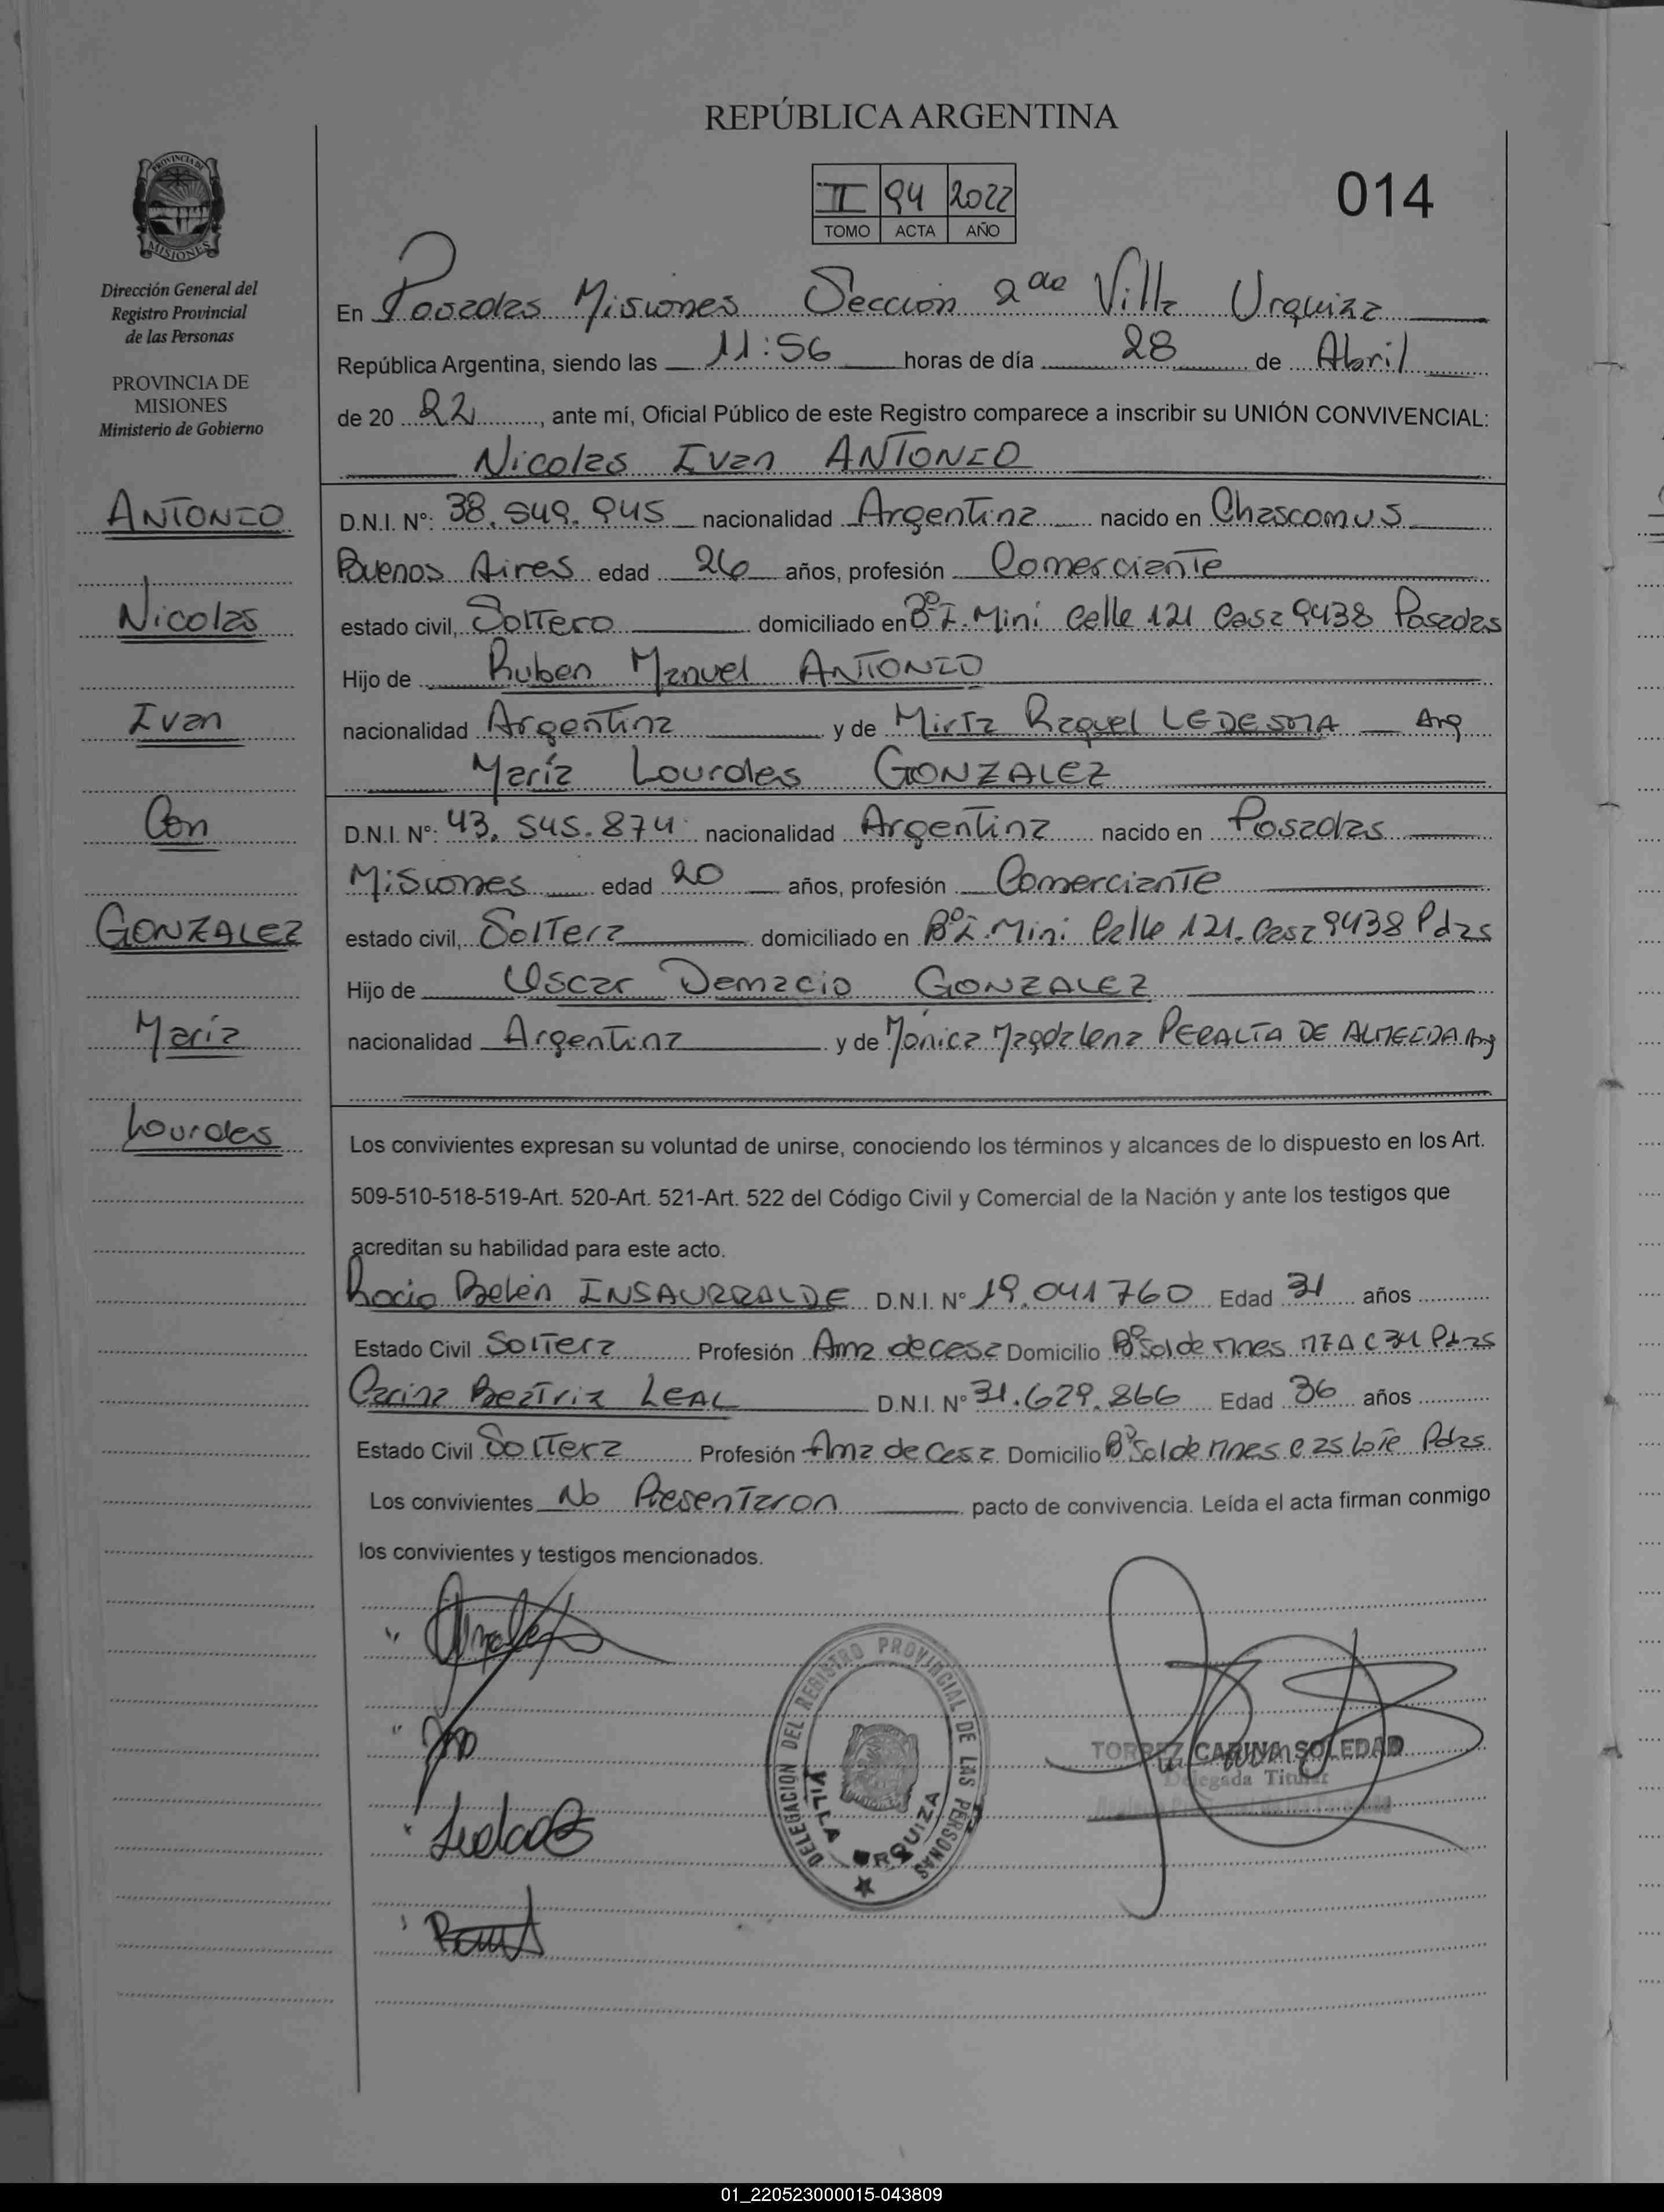 REPÚBLICA ARGENTINA
PROVINCIA DE
MISIONES
II 94 2022
TOMO ACTA AÑO
014
Dirección General del
Registro Provincial
de las Personas
PROVINCIA DE
MISIONES
Ministerio de Gobierno
ANTONIO
Nicolas
Ivan
Con
GONZALEZ
María
Lourdes
En Posadas Misiones Sección 2da Villa Urquiza
República Argentina, siendo las 11:56 horas de día 28 de Abril
de 20 22, ante mí, Oficial Público de este Registro comparece a inscribir su UNIÓN CONVIVENCIAL:
Nicolas Ivan ANTONIO
D.N.I. Nº: 38.549.945 nacionalidad Argentina nacido en Chascomus
Buenos Aires edad 26 años, profesión Comerciante
estado civil, Soltero domiciliado en Bº I. Mini Calle 121 Casa 9438 Posadas
Hijo de Ruben Manuel ANTONIO
nacionalidad Argentina y de Mirta Raquel LEDESMA Arg
María Lourdes GONZALEZ
D.N.I. Nº: 43.545.874 nacionalidad Argentina nacido en Posadas
Misiones edad 20 años, profesión Comerciante
estado civil, Soltera domiciliado en Bº I. Mini Calle 121. Casa 9438 Pdas
Hijo de Oscar Damacio GONZALEZ
nacionalidad Argentina y de Mónica Magdalena PERALTA DE ALMEIDA Arg
Los convivientes expresan su voluntad de unirse, conociendo los términos y alcances de lo dispuesto en los Art.
509-510-518-519-Art. 520-Art. 521-Art. 522 del Código Civil y Comercial de la Nación y ante los testigos que
acreditan su habilidad para este acto.
Rocio Belén INSAURRALDE D.N.I. Nº 19.041760 Edad 31 años
Estado Civil Soltera Profesión Ama de casa Domicilio Bº Sol de Mnes C 34 Pdas
Carina Beatriz LEAL D.N.I. Nº 31.629.866 Edad 36 años
Estado Civil Soltera Profesión Ama de Casa Domicilio Bº Sol de Mnes Pdas
Los convivientes No Presentaron pacto de convivencia. Leída el acta firman conmigo
los convivientes y testigos mencionados.
DELEGACION DEL REGISTRO PROVINCIAL DE LAS PERSONAS
VILLA URQUIZA
CARINA SOLEDAD
Delegada Titular
01_220523000015-043809